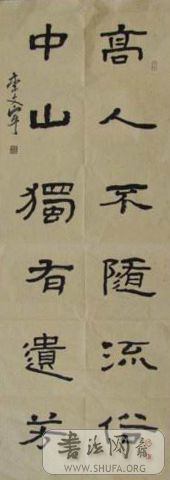 高人不随流俗
中山獨有遺芳
書法网
WWW.SHUFA.ORG